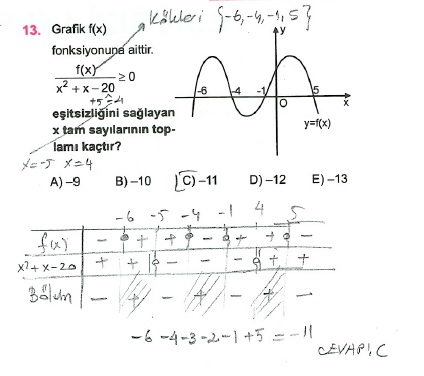 13. Grafik f(x) Kökleri {-6,-4,-1,5}
fonksiyonuna aittir.
f(x)
x² + x – 20 ≥ 0
+5 -4
eşitsizliğini sağlayan
x tam sayılarının top-
lamı kaçtır?
x=-5 x=4
y
-6 -4 -1 O 5 x
y=f(x)
A) –9 B) –10 C) –11 D) –12 E) –13
-6 -5 -4 -1 4 5
f(x) - + + - + + -
x²+x-20 + + - - - + +
Bölüm - + - + - + -
-6-4-3-2-1+5=-11
CEVAP: C